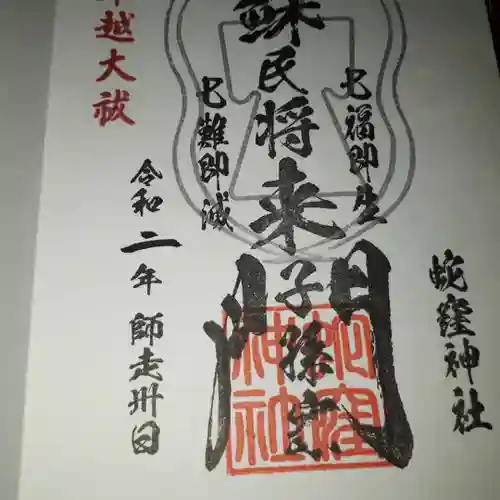 蛇窪神社
七福即生
蘇民将来子孫家門
七難即滅
越大祓
令和二年 師走卅日
蛇窪神社